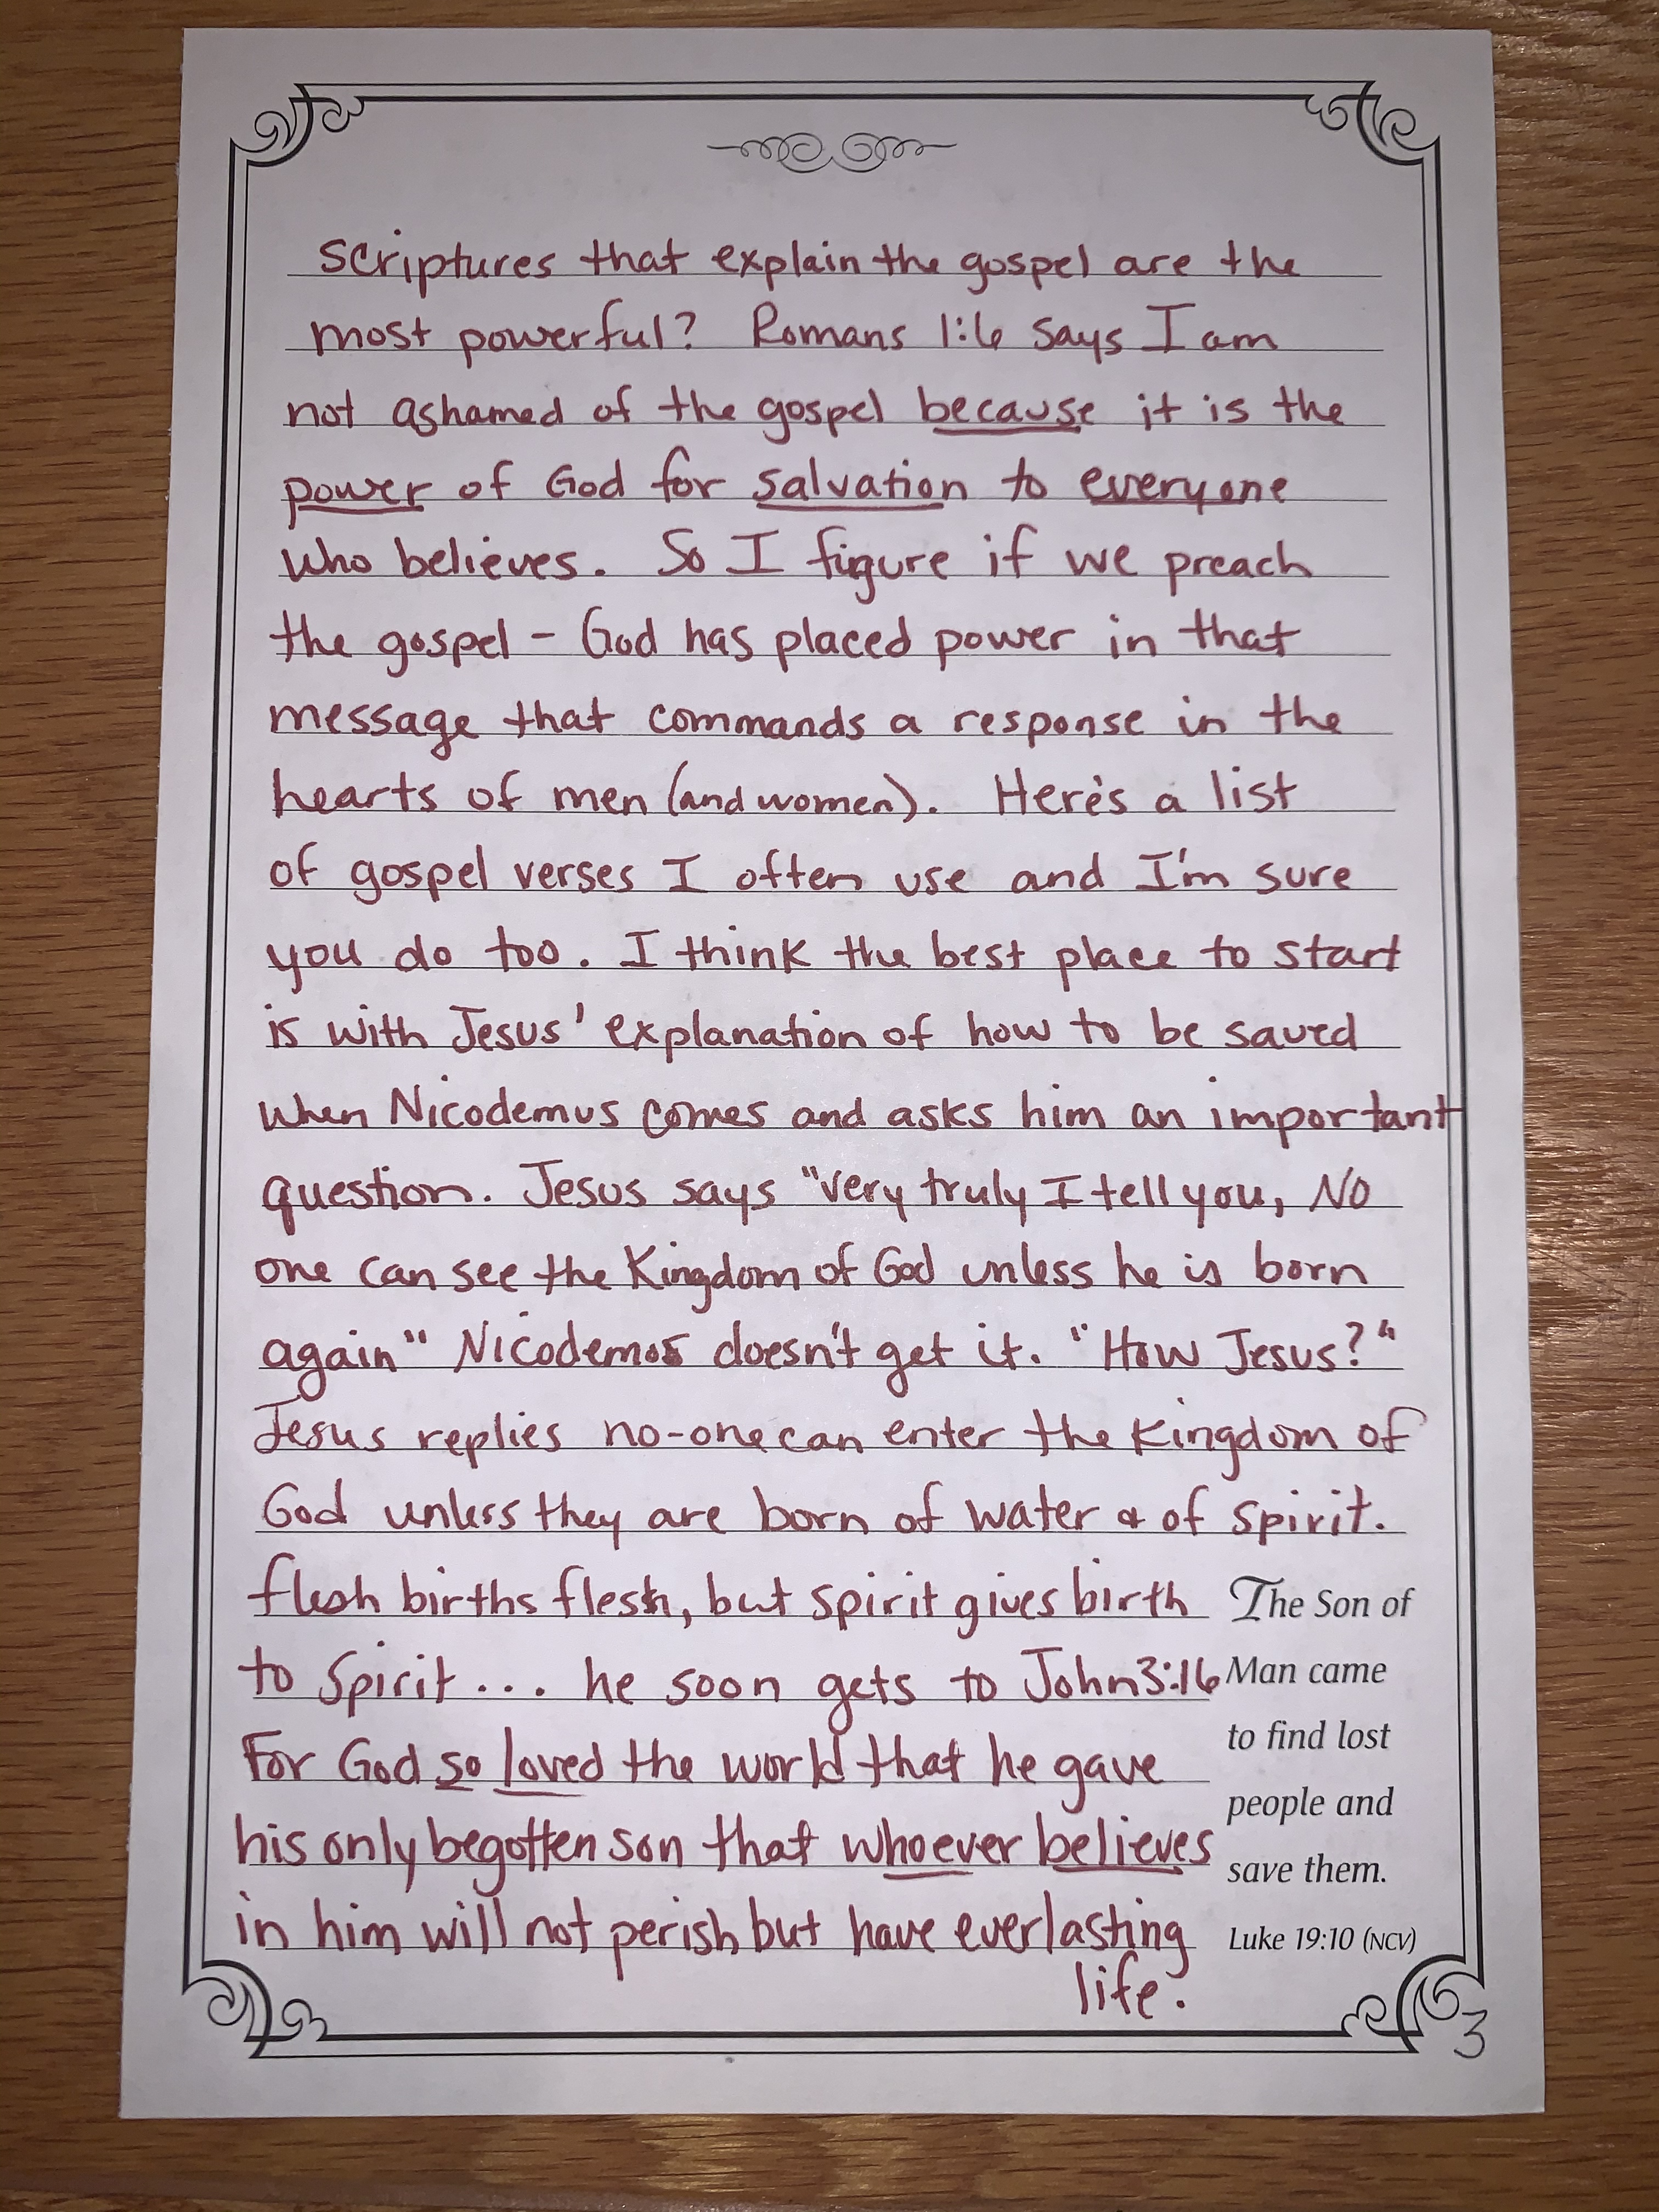 scriptures that explain the gospel are the
most powerful? Romans 1:6 says I am
not ashamed of the gospel because it is the
power of God for salvation to everyone
who believes. So I figure if we preach
the gospel - God has placed power in that
message that commands a response in the
hearts of men (and women). Here's a list
of gospel verses I often use and I'm sure
you do too. I think the best place to start
is with Jesus' explanation of how to be saved
when Nicodemus comes and asks him an important
question. Jesus says "very truly I tell you, NO
one can see the Kingdom of God unless he is born
again" Nicodemos doesn't get it. "How Jesus?"
Jesus replies no-one can enter the Kingdom of
God unless they are born of water & of spirit.
flesh births flesh, but spirit gives birth
to Spirit... he soon gets to John 3:16
For God so loved the world that he gave
his only begotten son that whoever believes
in him will not perish but have everlasting
life.
The Son of
Man came
to find lost
people and
save them.
Luke 19:10 (NCV)
3